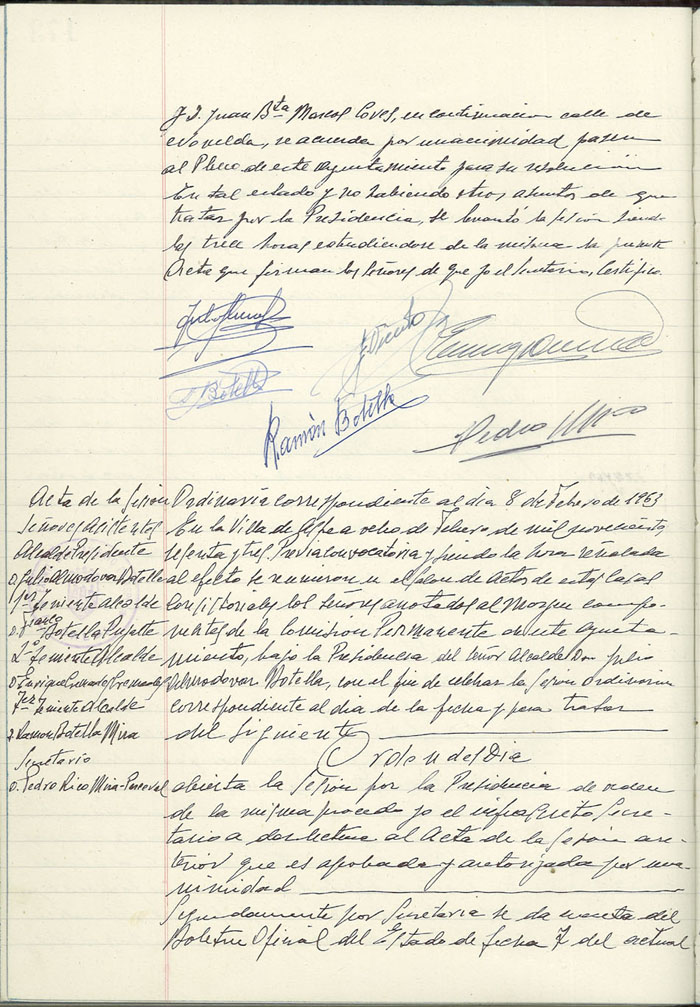 y D. Juan Bta Marcos Coves, en continuacion calle de
Novelda, se acuerda por unanimidad pasen
al Pleno de este Ayuntamiento para su resolucion
En tal estado y no habiendo otros asuntos de que
tratar por la Presidencia, se levantó la sesion siendo
las trece horas estendiendose de la misma la presente
Acta que firman los señores de que yo el Secretario, Certifico.
J Botella
Ramón Botella
Pedro Rico
Acta de la Sesion Ordinaria correspondiente al dia 8 de Febrero de 1963
Señores Asistentes
Alcalde Presidente
D. Julio Almodovar Botella
1er Teniente Alcalde
D. Botella Pujalte
2º Teniente Alcalde
D. Enrique Cremades Cremades
3er Teniente Alcalde
D. Ramon Botella Mira
Secretario
D. Pedro Rico Mira-Perceval
En la Villa de Aspe a ocho de Febrero de mil novecientos
sesenta y tres. Previa convocatoria y siendo la hora señalada
al efecto se reunieron en el salon de Actos de estas Casas
Consistoriales los señores anotados al Margen compo-
nentes de la Comision Permanente de este Ayunta-
miento, bajo la Presidencia del Señor Alcalde Don Julio
Almodovar Botella, con el fin de celebrar la Sesion Ordinaria
correspondiente al dia de la fecha y para tratar
del siguiente
Orden del Dia
Abierta la Sesion por la Presidencia de orden
de la misma procedo yo el infrascrito Secre-
tario a dar lectura al Acta de la Sesion an-
terior que es aprobada y autorizada por una-
nimidad
Seguidamente por Secretaria se da cuenta del
Boletin Oficial del Estado de fecha 7 del actual